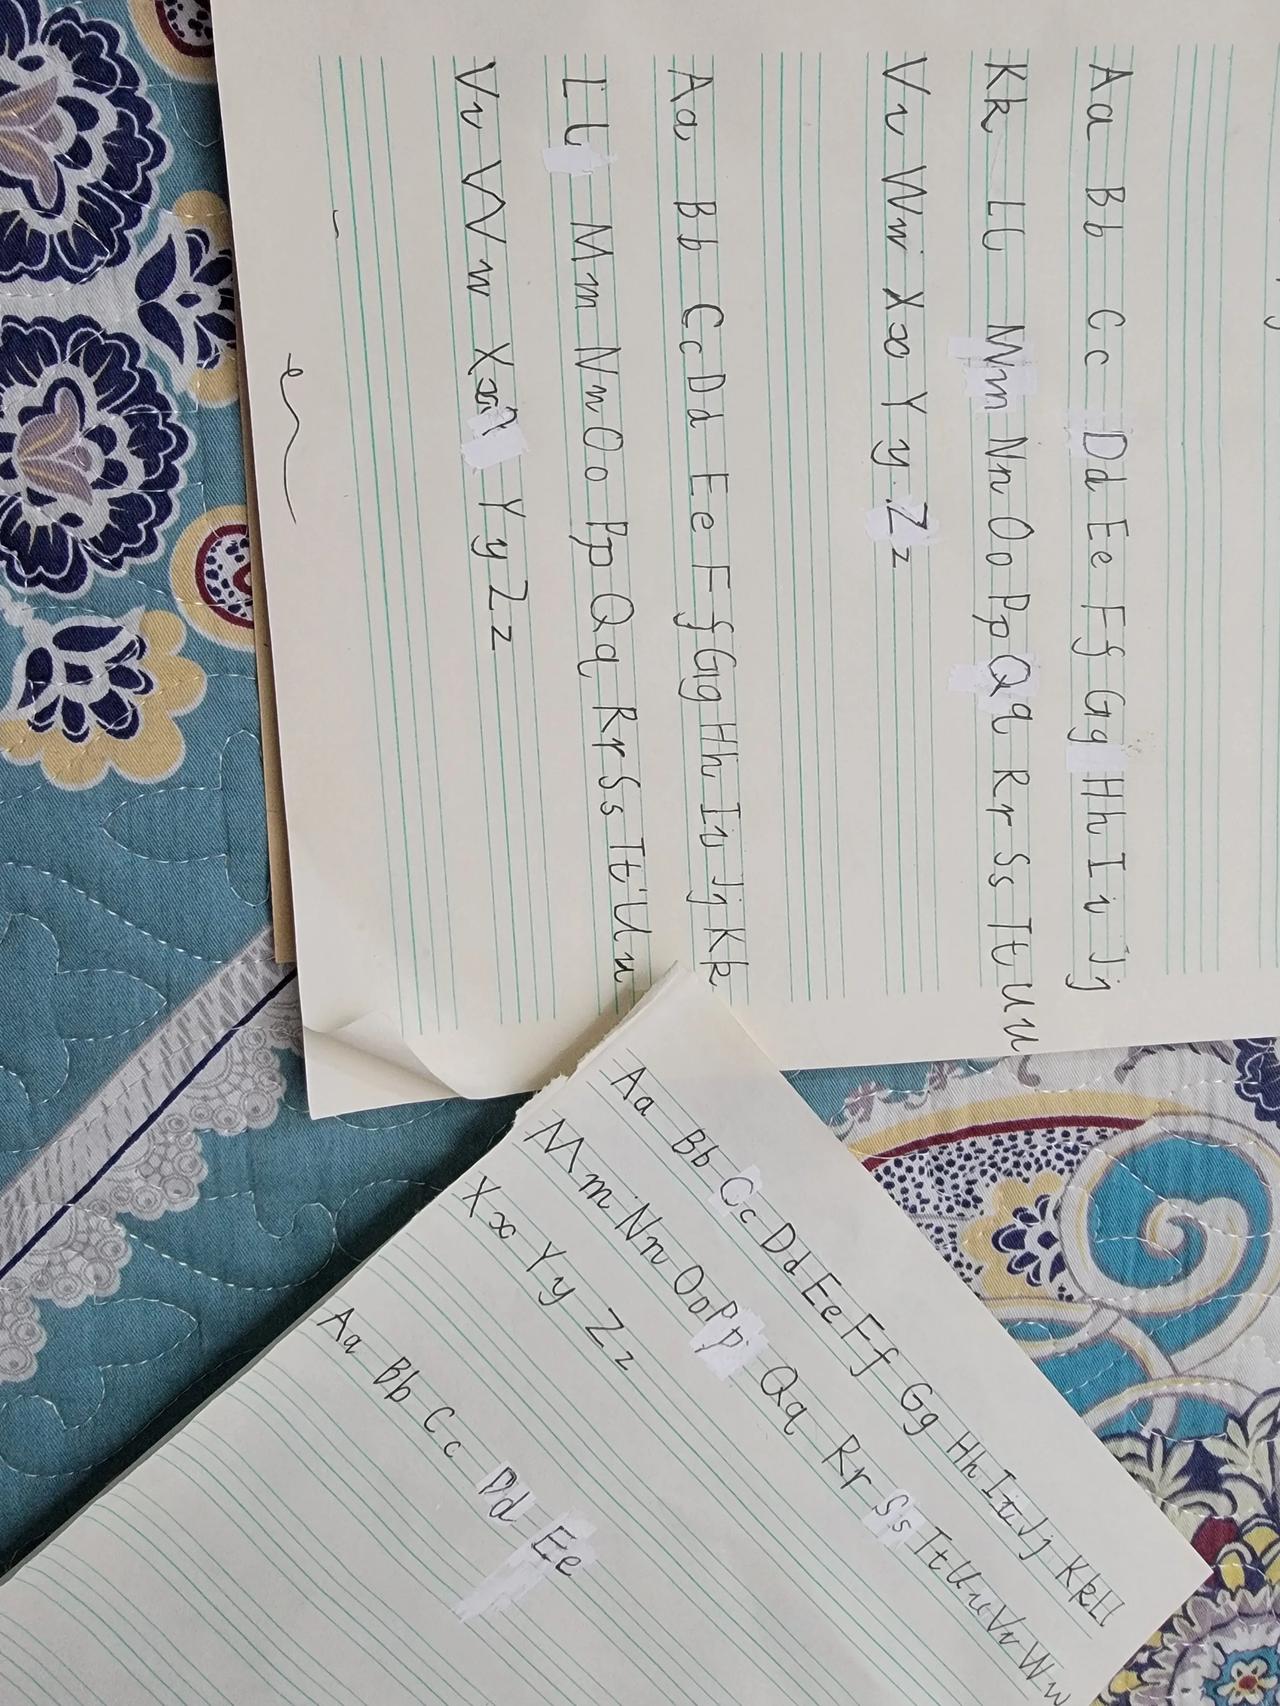 Aa Bb Cc Dd Ee Ff Gg Hh Ii Jj
Kk Ll Mm Nn Oo Pp Qq Rr Ss Tt Uu
Vv Ww Xx Yy Zz
Aa Bb Cc Dd Ee Ff Gg Hh Ii Jj Kk
Ll Mm Nn Oo Pp Qq Rr Ss Tt Uu
Vv Ww Xx Yy Zz
Aa Bb Cc Dd Ee Ff Gg Hh Ii Jj Kk Ll
Mm Nn Oo Pp Qq Rr Ss Tt Uu Vv Ww
Xx Yy Zz
Aa Bb Cc Dd Ee